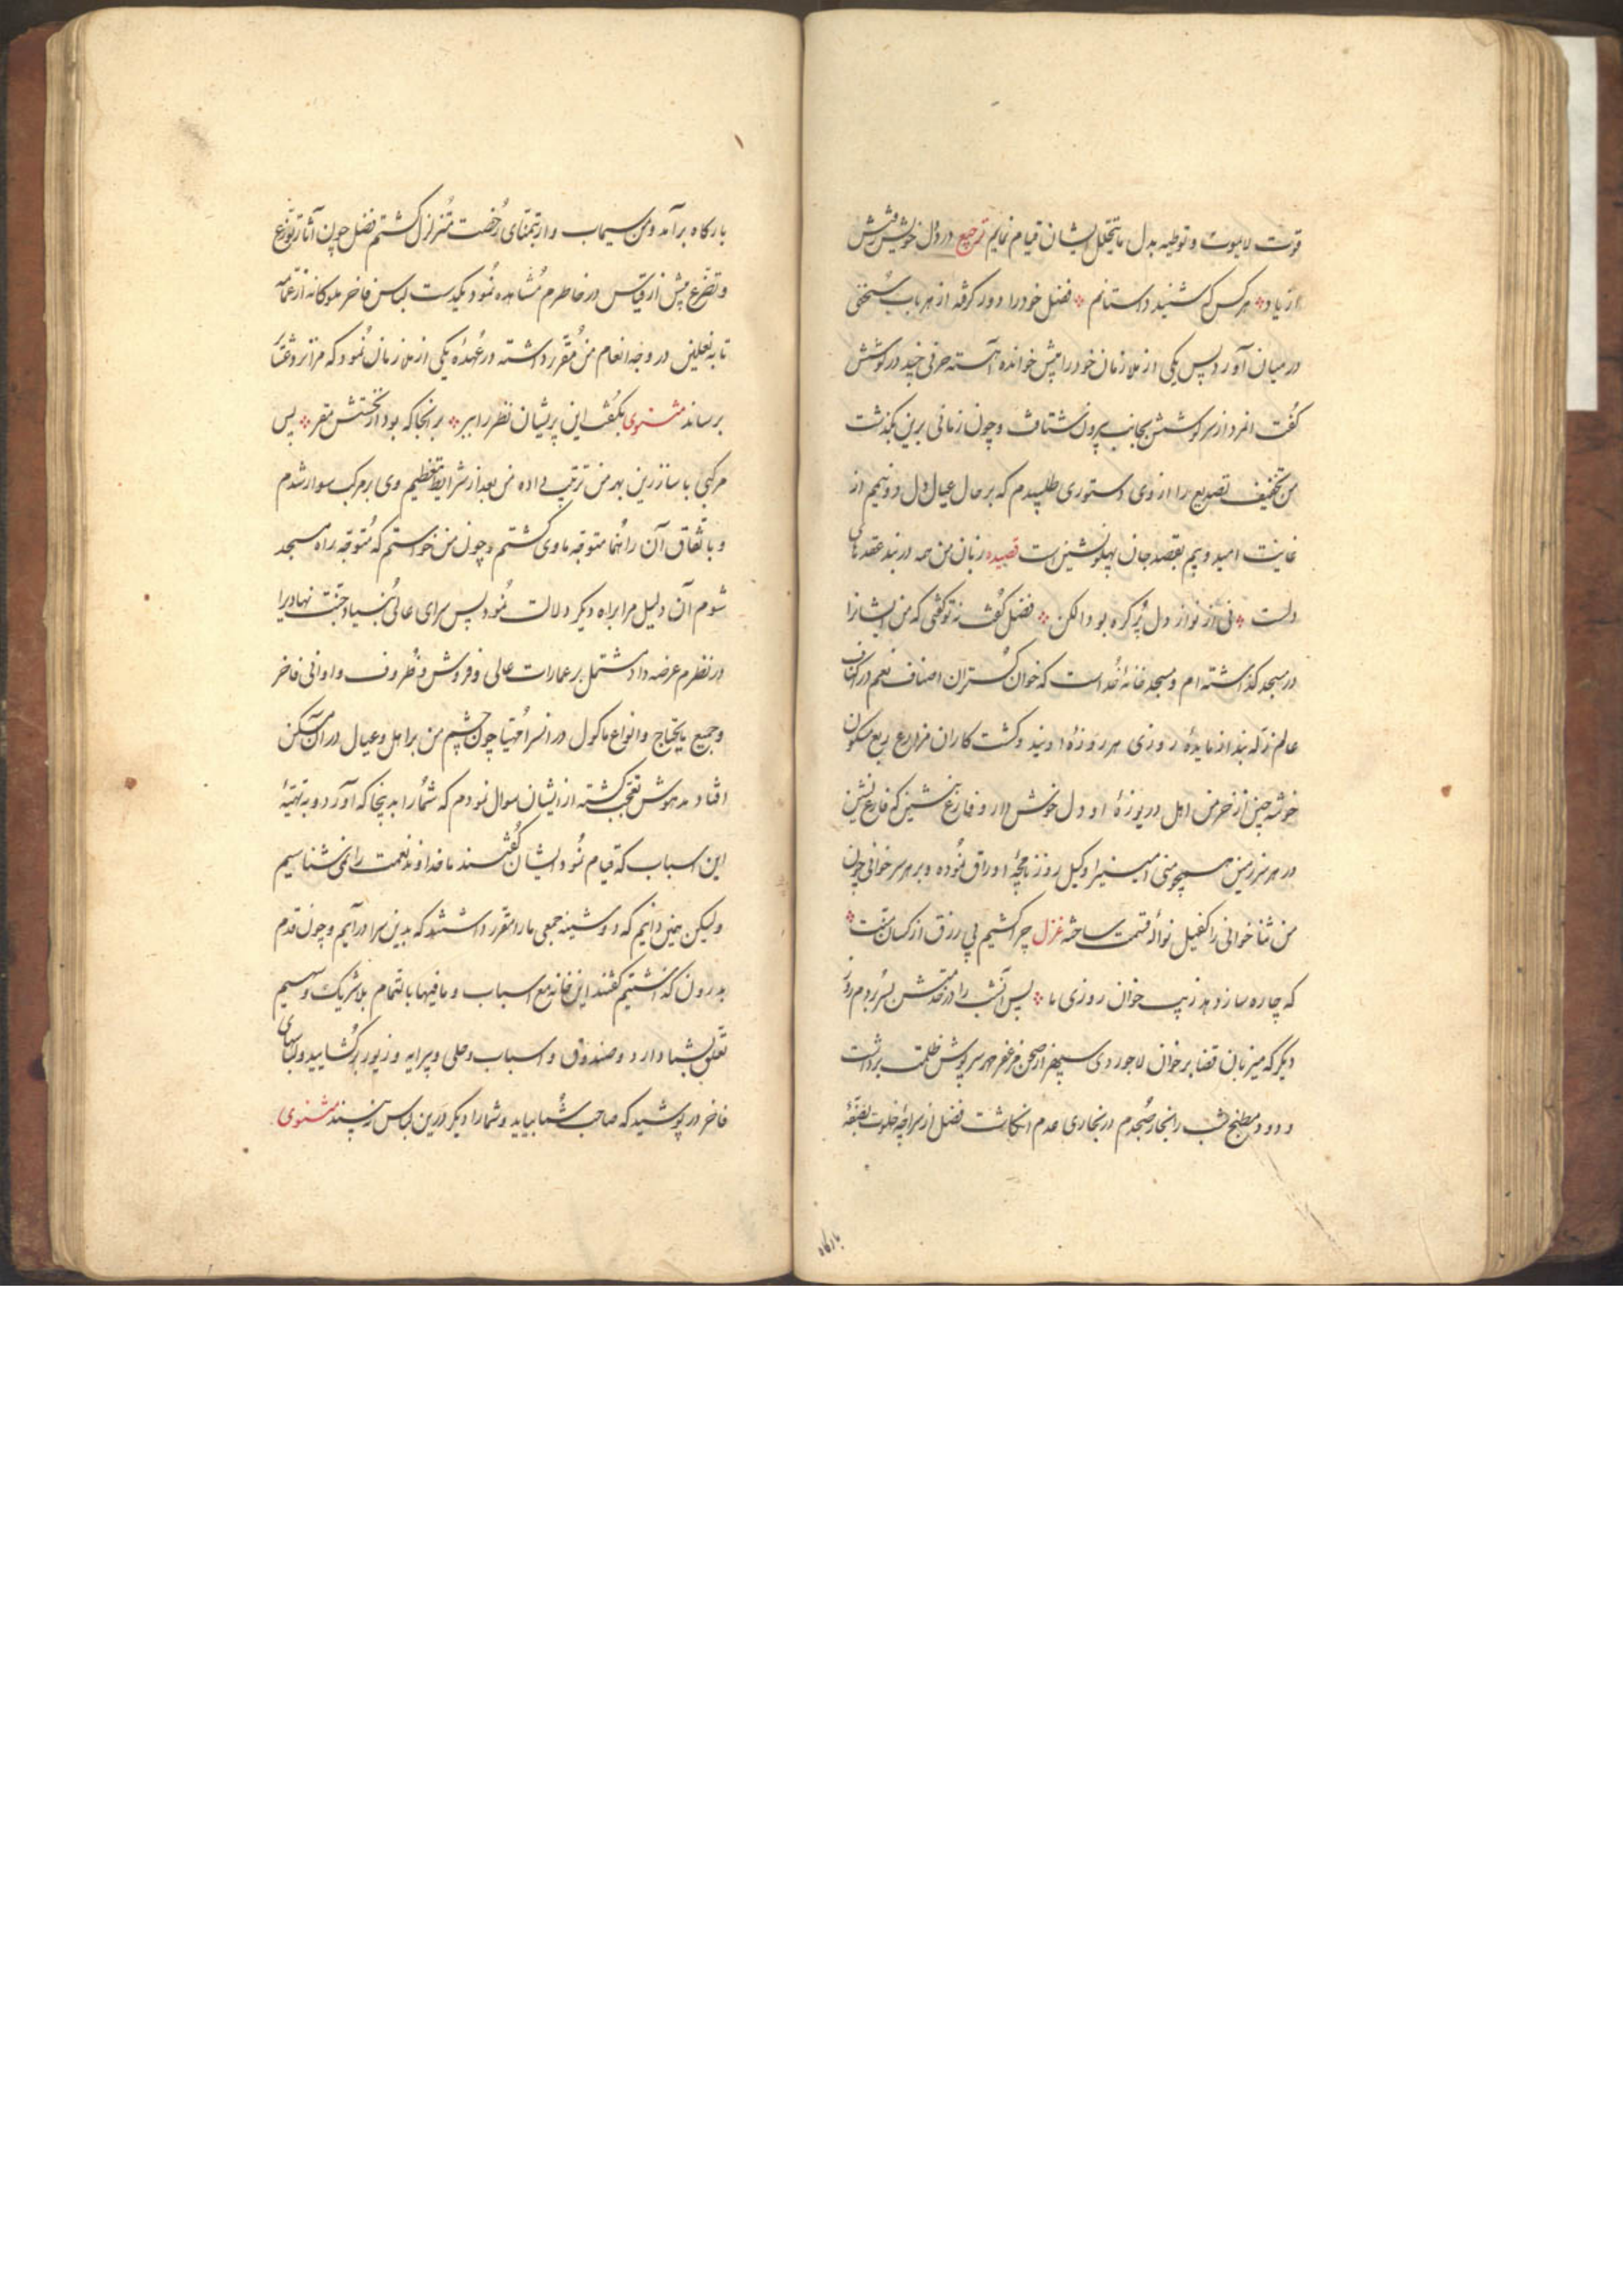 قوت لایموت و توطیه بدل مایتحلل ایشان قیام نمایم ترجیع درد دل خویش پیش
از یاد هر کس که شنید داستانم فضل خود را دور کرفته از هر باب سخنی
در میان آورد پس یکی از ملازمان خود را پیش خوانده آهسته حرفی چند در کوشش
کفت انمرد از سر کوشش بجانب بیرون شتافت و چون زمانی برین بکذشت
من تخفیف تصدیع را از وی دستوری طلبیدم که بر حال عیال دل دونیم از
غایت امید و بیم بقصد جان پهلو نشین است قصیده زبان من همه در بند عقدهای
دلست نی از نواز دل پر کره بود الکن فضل کفت نه تو کفتی که من ایشانرا
در مسجد کذاشته ام و مسجد خانهٔ خداست که خوان کستران اصناف نعم در اکناف
عالم زله بند از مایدهٔ روزی هر روزهٔ اویند و کشت کاران مزارع ربع مسکون
خوشه چین از خرمن اهل دریوزهٔ او دل خوش دار و فارغ نشین که فارغ نشین
در هر سرزمین همچو منی امینیرا وکیل روزنامچهٔ اوراق نموده و بر هر سر خوانی چون
من ثنا خوانی را کفیل نوالهٔ قسمت ساخته غزل چرا کشیم پی رزق از کسان منت
که چاره سازد هد زیب خوان روزی ما پس آنشب را در خدمتش بسر بردم روز
دیکر که میزبان قضا بر خوان لاجوردی سپهر از صحن مزعفر مهر سرپوش ظلمت برداشت
و دود مطبخ شب را بخار صبحدم در بخاری عدم انکاشت فضل از سراچهٔ خلوت بقبهٔ
بارکاه
بارکاه برآمد و من سیماب وار بتمنای رخصت متزلزل کشتم فضل چون آثار توزع
و تضرع بیش از قیاس در خاطرم مشاهده نمود یکدست لباس فاخر ملوکانه از عمامه
تا به نعلین در وجه انعام من مقرر داشته در عهدهٔ یکی از ملازمان نمود که مرا بر وثاق
برساند مثنوی بکفت این پریشان نظر را ببر بر انجا که بود از نخستش مقر پس
مرکبی با ساز زرین بهر من ترتیب داده من بعد از شرایط تعظیم وی بر مرکب سوار شدم
و باتفاق آن راهنما متوجه ماوی کشتم و چون من خواستم که متوجه راه مسجد
شوم آن دلیل مرا براه دیکر دلالت نمود پس سرای عالی بنیاد جنت نهادیرا
در نظرم عرضه داد مشتمل بر عمارات عالی و فروش و ظروف و اوانی فاخر
و جمیع مایحتاج و انواع ماکول در انسرا مهیا چون چشم من بر اهل و عیال در ان مسکن
افتاد مدهوش تعجب کشته از ایشان سوال نمودم که شما را بدینجا که آورد و به تهیهٔ
این اسباب که قیام نمود ایشان کفتند ما خداوند نعمت را نمی شناسیم
ولیکن همین دانیم که دوشینه جمعی ما را مقرر داشتند که بدین سرا درآییم و چون قدم
بدرون کذاشتیم کفتند این خانه مع اسباب و مافیها بالتمام بلا شریک و سهیم
تعلق بشما دارد و صندوق و اسباب و حلی و پیرایه و زیور بر کشایید و لباسهای
فاخر در پوشید که صاحب شما بیاید و شما را دیکر درین لباس نه بیند مثنوی